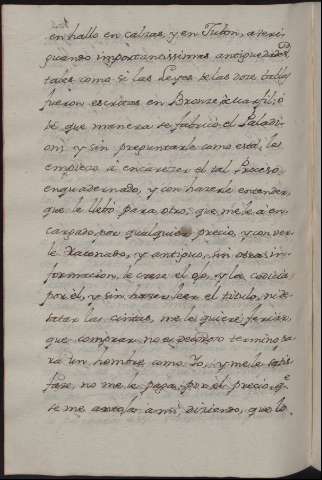 en hallo en calzas, y en Jubon, averi-
guando importantissimas antiguedades,
tales como si las Leyes de las doze tablas
fueron escritas en Bronze, ò marfil, ò
de que manera se fabricó el Paladi-
on; y sin preguntarle como està, le
empiezo à encarezer el tal Proceso
enquadernado, y con hazerle entender,
que le llebò para otro, que me le à en-
cargado, por qualquier precio, y con ver-
le Ratonado, y antiguo, sin otra in-
formacion, le crece el ojo, y la codicia
por él, y sin hazer leer el titulo, ni de-
satar las cintas, me le quiere feriar,
que comprar no es decoroso termino pa-
ra un hombre como Yo, y me le satis-
faze, no me le paga, por el precio que
se me antoja a mi, diziendo, que lo